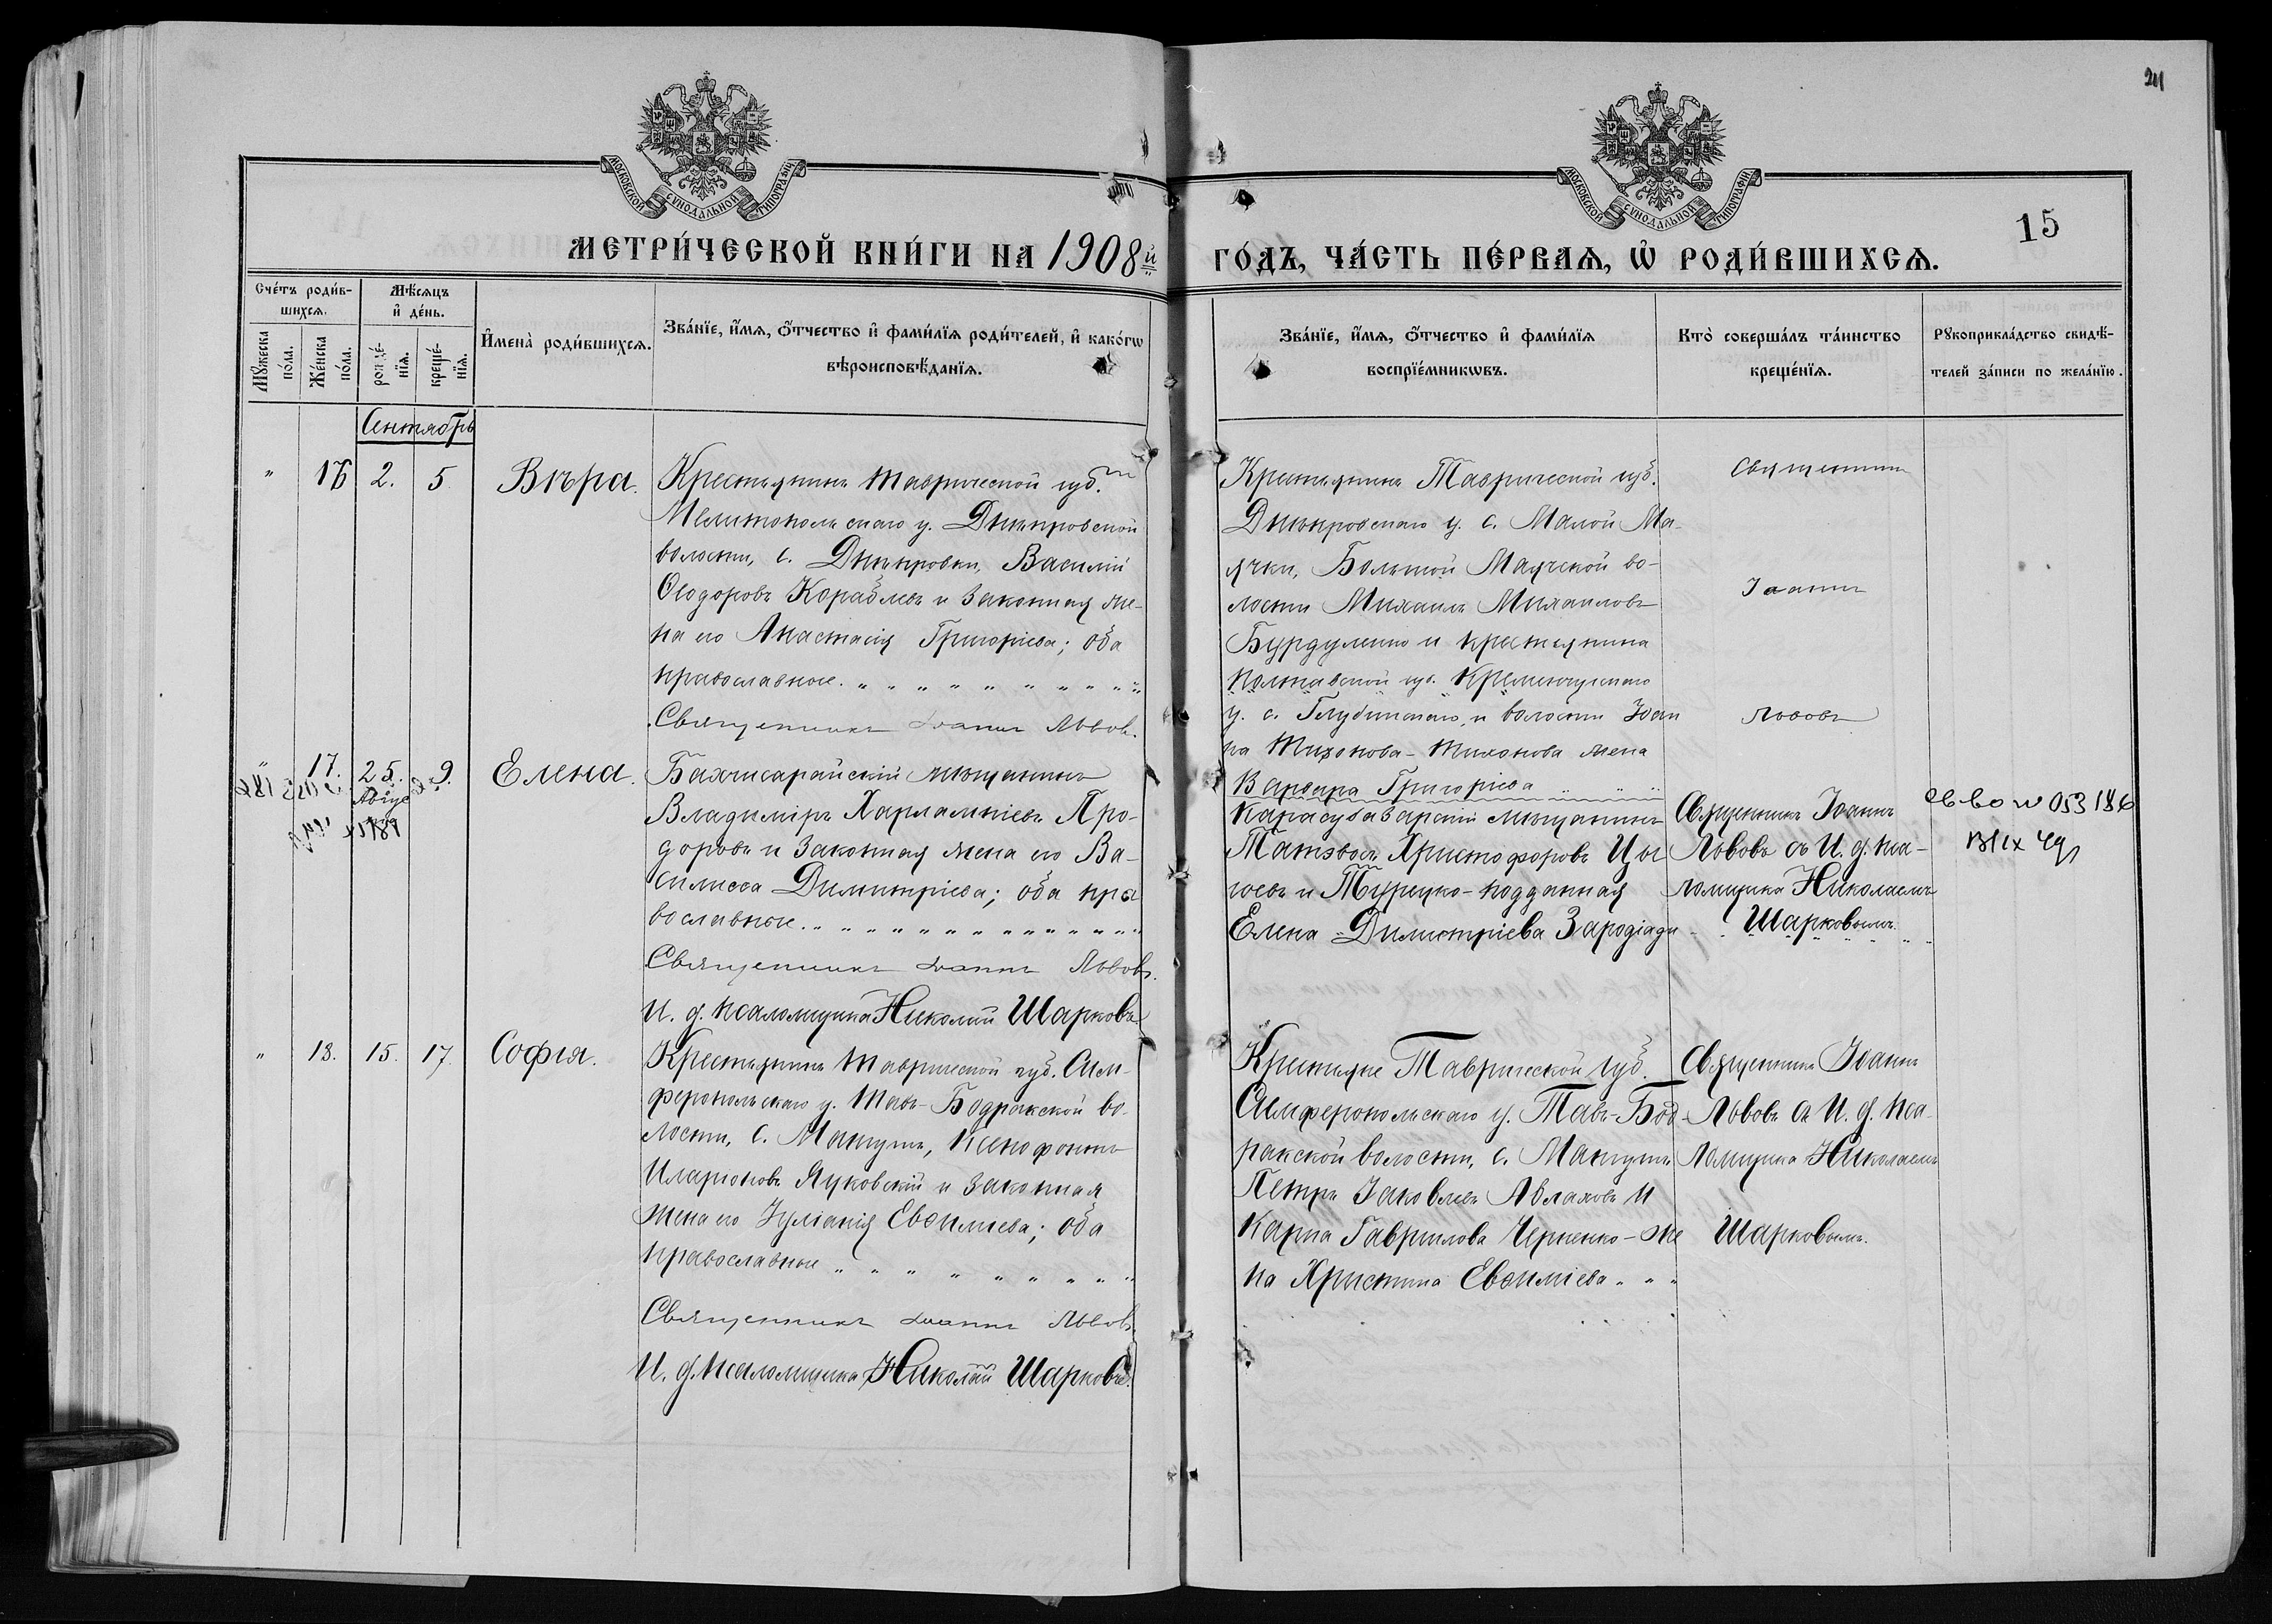 241
МОСКОВСКОЙ СѴНОДАЛЬНОЙ ТИПОГРАФІИ
МОСКОВСКОЙ СѴНОДАЛЬНОЙ ТИПОГРАФІИ
15
МЕТРИ́ЧЕСКОЙ КНИ́ГИ НА 1908й
ГО́ДЪ, ЧА́СТЬ ПЕ́РВАѦ, Ѡ РОДИ́ВШИХСѦ.
Сче́тъ роди́в-
шихсѧ.
Мꙋжеска по́ла.
Же́нска по́ла.
Мѣ́сѧцъ
и҆ де́нь.
рожде́-
нїѧ.
креще́-
нїѧ.
И҆мена̀ роди́вшихсѧ.
Зва́нїе, и҆́мѧ, ѻ҆́тчество и҆ фами́лїѧ роди́телей, и҆ како́гѡ
вѣроисповѣ́данїѧ.
Зва́нїе, и҆́мѧ, ѻ҆́тчество и҆ фами́лїѧ
воспрїе́мникѡвъ.
Кто̀ соверша́лъ та́инство
креще́нїѧ.
Рꙋкоприкла́дство свидѣ́-
телей за́писи по жела́нїю.
Сентябрь
" 16 2. 5. Вѣра.
Крестьянинъ Таврической губ.
Мелитопольскаго у. Днѣпровской
волости, с. Днѣпровки, Василій
Ѳеодоровъ Кораблевъ и законная же-
на его Анастасія Григоріева; оба
православные.
Священникъ Іоаннъ Львовъ.
Крестьянинъ Таврической губ.
Днѣпровскаго у. с. Малой Ма-
ячки, Большой Маячской во-
лости Михаилъ Михаиловъ
Бурдуленко и крестьянина
Полтавской губ. Кременчугскаго
у. с. Глубинскаго, и волости Іоан
на Тихонова-Тихонова жена
Варвара Григоріева
Священникъ
Іоаннъ
Львовъ
" 17. 25. 9. Елена.
Авгус
Бахчисарайскій мѣщанинъ
Владиміръ Харлампіевъ Про-
доровъ и законная жена его Ва-
силисса Димитріева; оба пра
вославные.
Священникъ Іоаннъ Львовъ.
И. д. псаломщика Николай Шарковъ
Карасубазарскій мѣщанинъ
Матѳей Христофоровъ Цы
гоевъ и Турецко-подданная
Елена Димитріева Зародіади
Священникъ Іоаннъ
Львовъ съ И. д. пса-
ломщика Николаемъ
Шарковымъ.
св во N 053186
" 18. 15. 17. Софія.
Крестьянинъ Таврической губ. Сим-
феропольскаго у. Тавъ-Бодракской во-
лости, с. Мангушъ, Ксенофонтъ
Иларіоновъ Яцковскій и законная
жена его Іуліанія Евѳиміева; оба
православные
Священникъ Іоаннъ Львовъ.
И. д. псаломщика Николай Шарковъ.
Крестьяне Таврической губ.
Симферопольскаго у. Тавъ-Бод-
ракской волости, с. Мангушъ
Петръ Іаковлевъ Авлаховъ и
Карпа Гаврилова Черненко-же
на Христина Евѳиміева
Священникъ Іоаннъ
Львовъ съ И. д. пса-
ломщика Николаемъ
Шарковымъ.